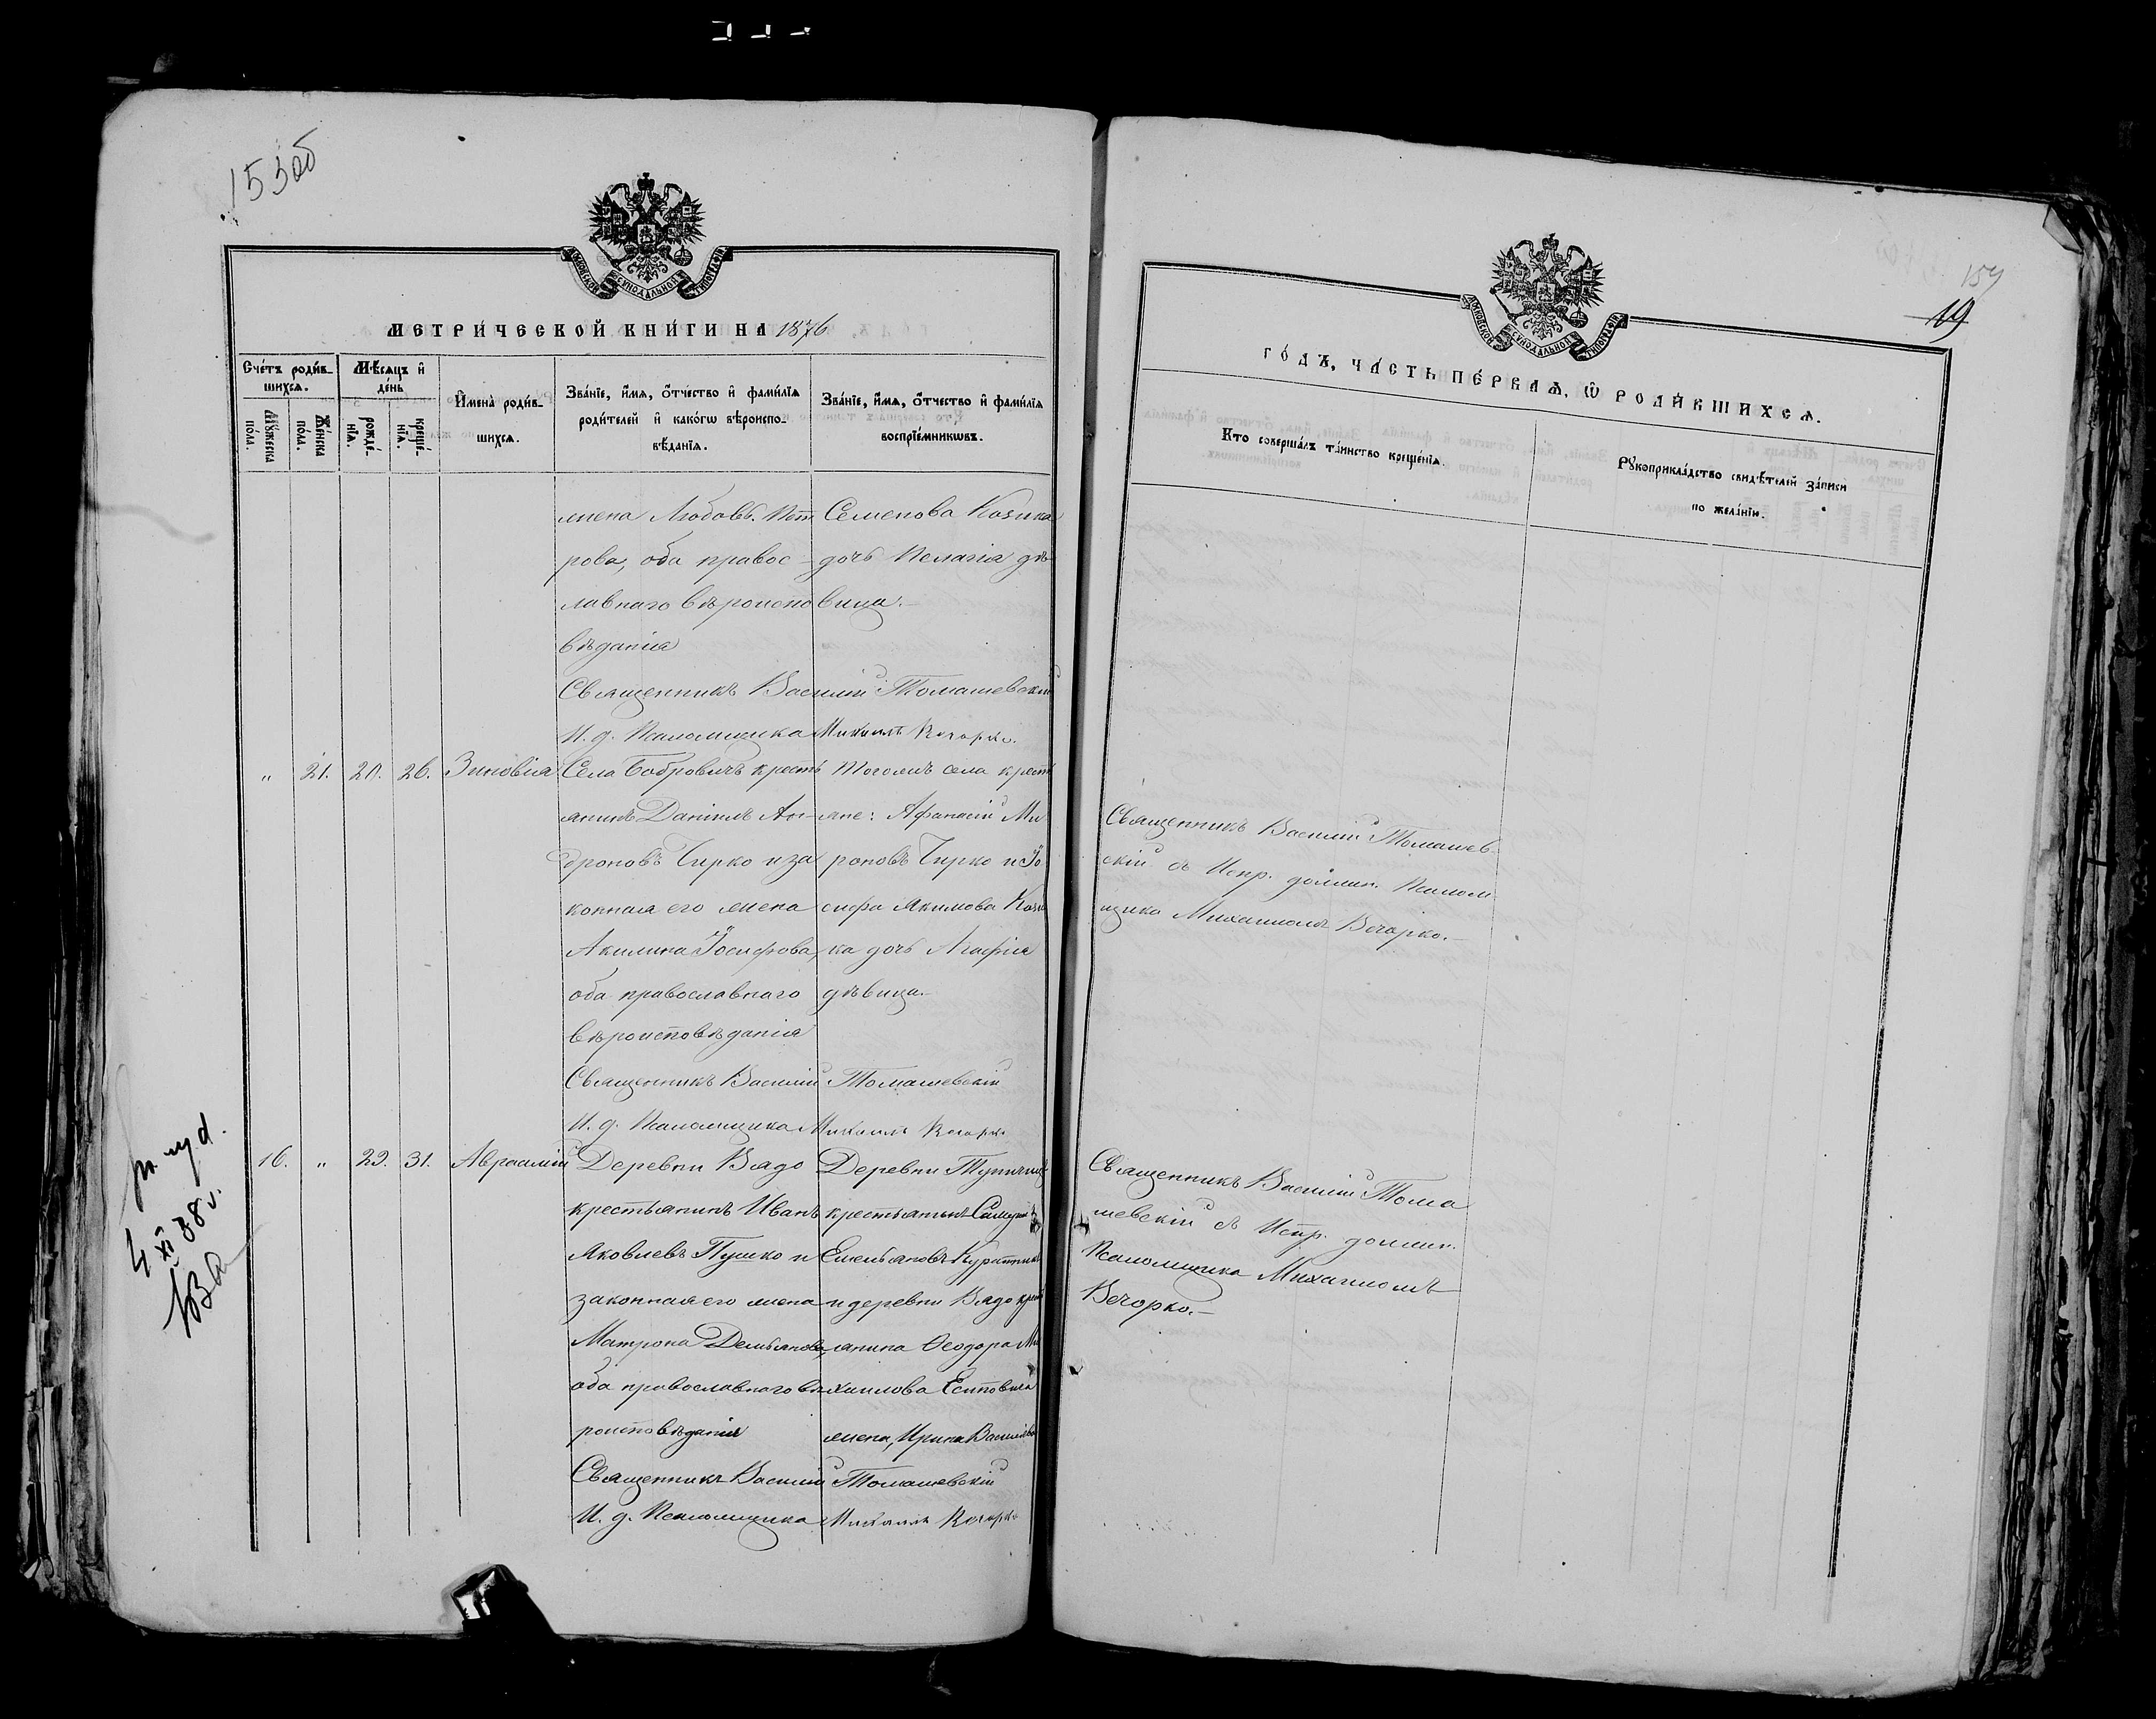 153об
МОСКОВСКОЙ СИНОДАЛЬНОЙ ТИПОГРАФІИ
МЕТРИ́ЧЕСКОЙ КНИ́ГИ НА 1876
Сче́тъ роди́в-
шихсѧ.
Мѣ́сѧцъ и҆
де́нь
Мꙋ́жеска
по́ла.
Же́нска
по́ла.
рожде́-
нїѧ.
креще́-
нїѧ.
И҆мена̀ роди́в-
шихсѧ.
Зва́нїе, и҆́мѧ, ѻ҆́тчество и҆ фами́лїѧ
роди́телей и҆ како́гѡ вѣроиспо-
вѣ́данїѧ.
Зва́нїе, и҆́мѧ, ѻ҆́тчество и҆ фами́лїѧ
воспрїе́мникѡвъ.
жена Любовь Пет
рова, оба правос-
лавнаго вѣроиспо
вѣданія
Семенова Козика
дочь Пелагія дѣ
вица.-
Священникъ Василій Томашевскій
И. д. Псаломщика Михаилъ Вечорко.
" 21. 20. 26. Зиновія
Села Бобровичъ кресть
янинъ Даніилъ Ан-
дроновъ Чирко и за
конная его жена
Акилина Іосифова,
оба православнаго
вѣроисповѣданія
Тогожъ села крест
яне: Афанасій Ми
роновъ Чирко и Іо
сифа Якимова Кози
ка дочь Агафія
дѣвица.-
Священникъ Василій Томашевскій
И. д. Псаломщика Михаилъ Вечорко
16. " 29. 31. Авраамій
Деревни Вядо
крестьянинъ Иванъ
Яковлевъ Пушко и
законная его жена
Матрона Демьянова,
оба православнаго вѣ
роисповѣданія
Деревни
крестьянинъ
Емельяновъ
и деревни Вядо крест
янина Ѳеодора Ми
хаилова Есиповича
жена, Ирина Васильева
Священникъ Василій Томашевскій
И. д. Псаломщика Михаилъ Вечорко
XI 88 г.
159
19
МОСКОВСКОЙ СИНОДАЛЬНОЙ ТИПОГРАФІИ
ГО́ДЪ, ЧА́СТЬ ПЕ́РВАѦ, Ѡ҆ РОДИ́ВШИХСѦ.
Кто̀ соверша́лъ та́инство креще́нїѧ.
Рꙋкоприкла́дство свидѣ́телей за́писи
по жела́нїю.
Священникъ Василій Томашев-
скій съ Испр. должн. Псалом
щика Михаиломъ Вечорко.-
Священникъ Василій Тома
шевскій съ Испр. должн.
Псаломщика Михаиломъ
Вечорко.-